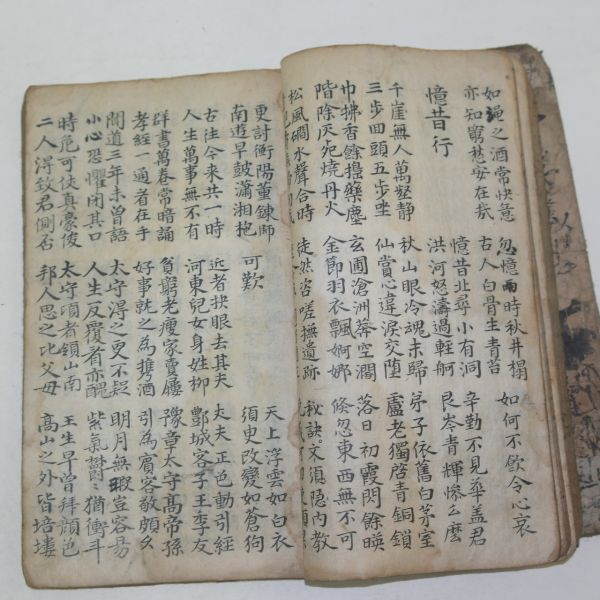 如澠之酒常快意
亦知窮愁安在哉
忽憶雨時秋井榻
古人白骨生青苔
如何不飲令心哀
憶昔行
憶昔北尋小有洞
洪河怒濤過輕舸
辛勤不見華盖君
艮岑青輝慘么麽
千崖無人萬壑静
三步回頭五步坐
秋山眼冷魂未歸
仙賞心違淚交墮
弟子依舊白茅室
盧老獨啓青銅鎖
巾拂香餘搗藥塵
階除灰死燒丹火
玄圃滄洲莽空濶
金節羽衣飄婀娜
落日初霞閃餘暎
倏忽東西無不可
松風磵水聲合時
徒然咨嗟撫遺跡
秘訣文須隱内教
更討衡陽董鍊師
南遊早皷瀟湘柂
可歎
天上浮雲如白衣
須臾改變如蒼狗
古往今來共一時
人生萬事無不有
近者抉眼去其夫
河東兒女身姓柳
丈夫正色動引經
酆城客子王季友
群書萬卷常暗誦
孝經一通看在手
貧窮老瘦家賣屩
好事就之為携酒
豫章太守髙帝孫
引為賓客敬頗久
聞道三年未曾語
小心恐懼閉其口
太守得之更不疑
人生反覆看亦醜
明月無瑕豈容易
紫氣欝欝猶衝斗
時危可仗真豪俊
二人得致君側否
太守頃者領山南
邦人思之比父母
王生早曾拜顔色
髙山之外皆培塿